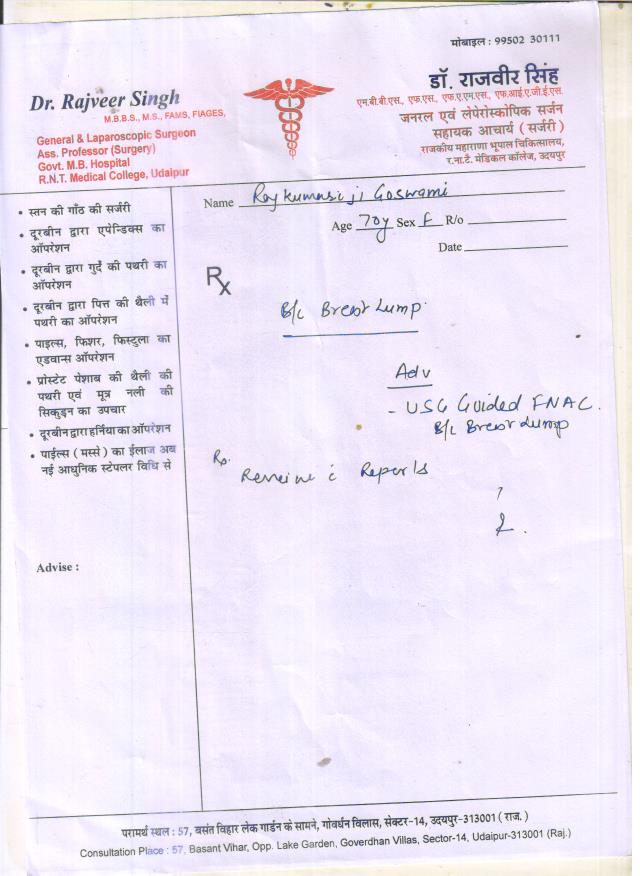 मोबाइल : 99502 30111
Dr. Rajveer Singh
M.B.B.S., M.S., FAMS, FIAGES,
General & Laparoscopic Surgeon
Ass. Professor (Surgery)
Govt. M.B. Hospital
R.N.T. Medical College, Udaipur
डॉ. राजवीर सिंह
एम.बी.बी.एस., एफ.एस., एफ.ए.एम.एस., एफ.आई.ए.जी.ई.एस.
जनरल एवं लेपेरोस्कोपिक सर्जन
सहायक आचार्य ( सर्जरी )
राजकीय महाराणा भूपाल चिकित्सालय,
र.ना.टे. मेडिकल कॉलेज, उदयपुर
• स्तन की गाँठ की सर्जरी
• दूरबीन द्वारा एपेन्डिक्स का
ऑपरेशन
• दूरबीन द्वारा गुर्दे की पथरी का
ऑपरेशन
• दूरबीन द्वारा पित्त की थैली में
पथरी का ऑपरेशन
• पाइल्स, फिशर, फिस्टुला का
एडवान्स ऑपरेशन
• प्रोस्टेट पेशाब की थैली की
पथरी एवं मूत्र नली की
सिकुड़न का उपचार
• दूरबीन द्वारा हर्निया का ऑपरेशन
• पाईल्स ( मस्से ) का ईलाज अब
नई आधुनिक स्टेपलर विधि से
Advise :
Name Rajkumari ji Goswami
Age 70y Sex F R/o
Date
Rx
B/L Breast Lump
Adv
- USG Guided FNAC
B/L Breast Lump
Review c Reports
परामर्थ स्थल : 57, बसंत विहार लेक गार्डन के सामने, गोवर्धन विलास, सेक्टर-14, उदयपुर-313001 ( राज. )
Consultation Place : 57, Basant Vihar, Opp. Lake Garden, Goverdhan Villas, Sector-14, Udaipur-313001 (Raj.)